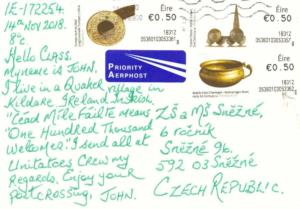 IE-172254.
14th Nov 2018.
8°c
Hello CLASS.
My name is JOHN.
I live in a Quaker village in
Kildare Ireland In Irish,
"Cead Mile Failte means
"One Hundred Thousand
Welcomes" I send all at
Crew my
Regards. Enjoy your
Postcrossing, JOHN.
PRIORITY
AERPHOST
Éire
€0.50
18312
Éire
€0.50
18312
Éire
€0.50
18312
ZŠ a MŠ Sněžné,
6 ročník
Sněžné 96.
592 03 Sněžné
CZECH REPUBLIC.